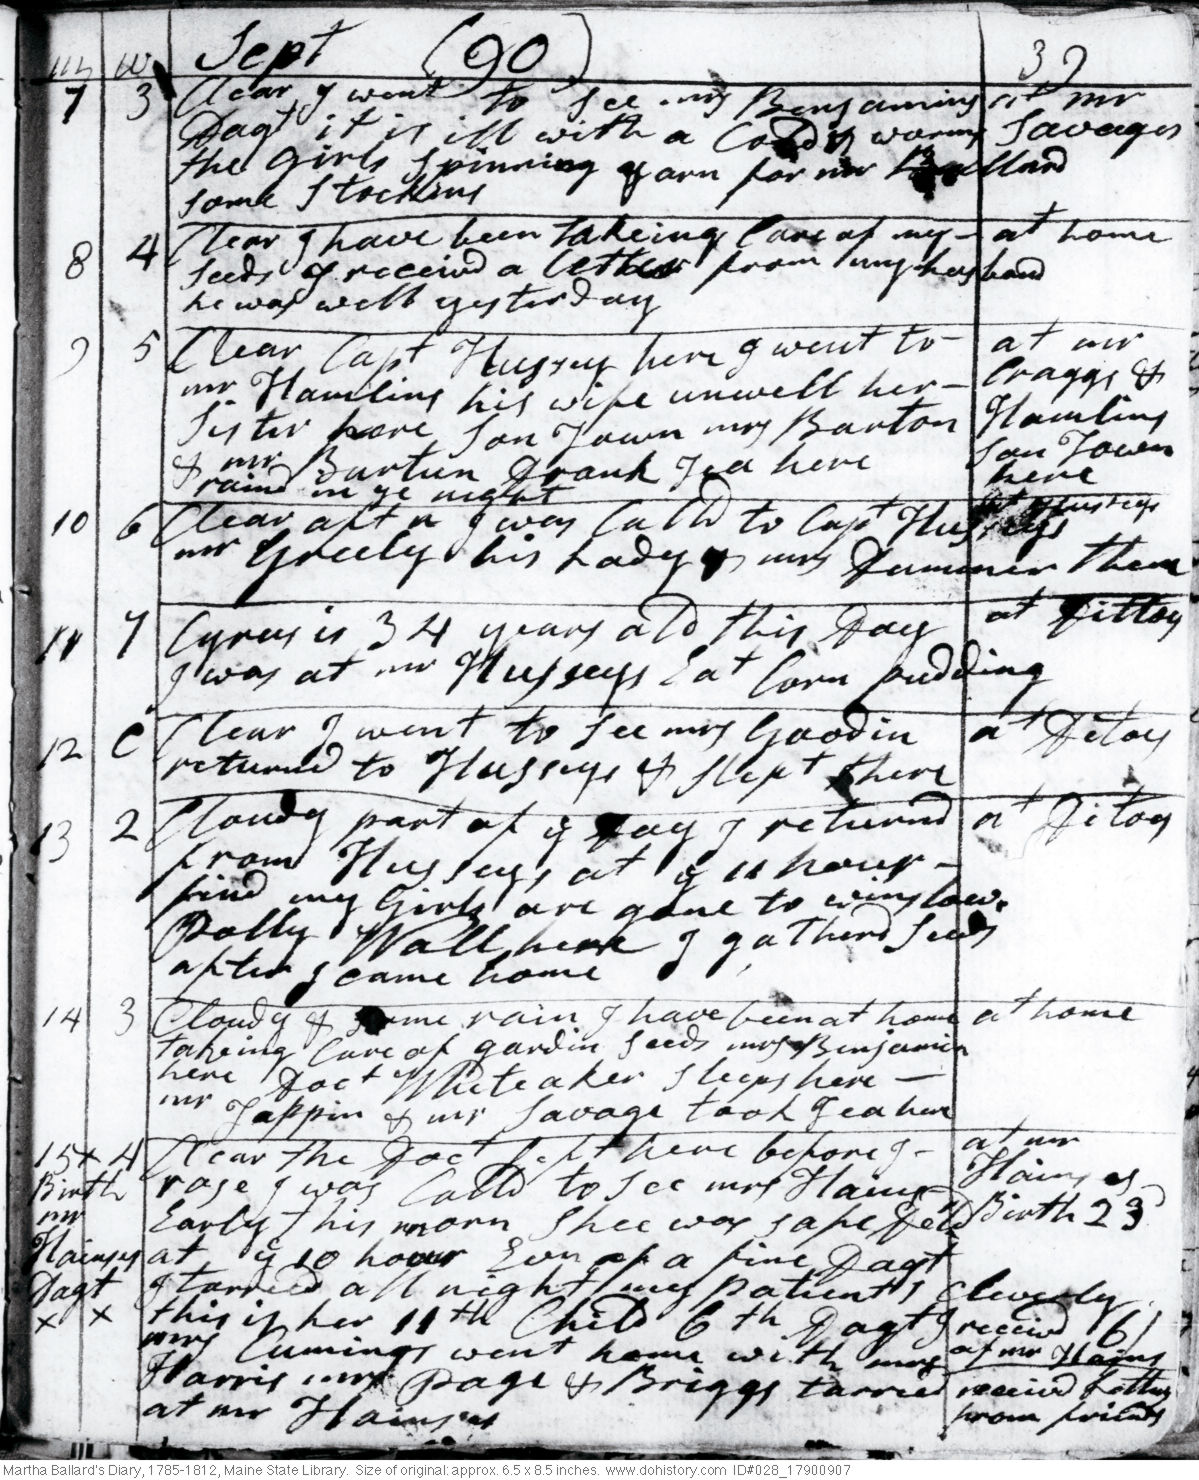 m w Sept (90) 39
7 3 Clear I went to See mrs Benjamins at mr
Dagt it is ill with a Cold & worms Savages
the Girls Spinning yarn for mr Ballard
some Stockins
8 4 Clear I have been takeing Care of my - at home
seeds I receivd a letter from my husband
he was well yesterday
9 5 Clear Capt Hussey here I went to - at mr
mr Hamlins his wife unwell her - Craggs &
Sister here Son Town mrs Barton Hamlins
& mr Burtun Drank Tea here Son Town
raind in ye night here
10 6 Clear aftn I was Calld to Capt Husseys at Husseys
mr Greely his Lady & mrs Dummer there
11 7 Cyrus is 34 years old this Day at Dittoy
I was at mr Husseys Eat Corn pudding
12 C Clear I went to see mrs Goodin at Ditoy
returned to Husseys & slept there
13 2 Cloudy part of ye Day I returnd at Ditoy
from Husseys at ye 11 hour -
find my Girls are gone to winslow.
Polly Wall here I gatherd Seeds
after I came home
14 3 Cloudy & some rain I have been at home at home
takeing Care of gardin Seeds mrs Benjamin
here Doct Whiteaker Sleeps here -
mr Tappin & mr Savage took Tea here
15 x 4 Clear the Doct left here before I - at mr
Birth rose I was Calld to see mrs Hains - Hainses
mr Early this morn Shee was safe Deld Birth 23
Hainses at ye 10 hour Evn of a fine Dagt
Dagt I tarried all night my patient Cleverly
x x this is her 11th Child 6th Dagt I receivd 6/
mrs Cumings went home with mrs of mr Hains
Harris mrs Page & Briggs tarried receivd
at mr Hainses from friends
Martha Ballard's Diary, 1785-1812, Maine State Library. Size of original: approx. 6.5 x 8.5 inches. www.dohistory.com ID#028_17900907